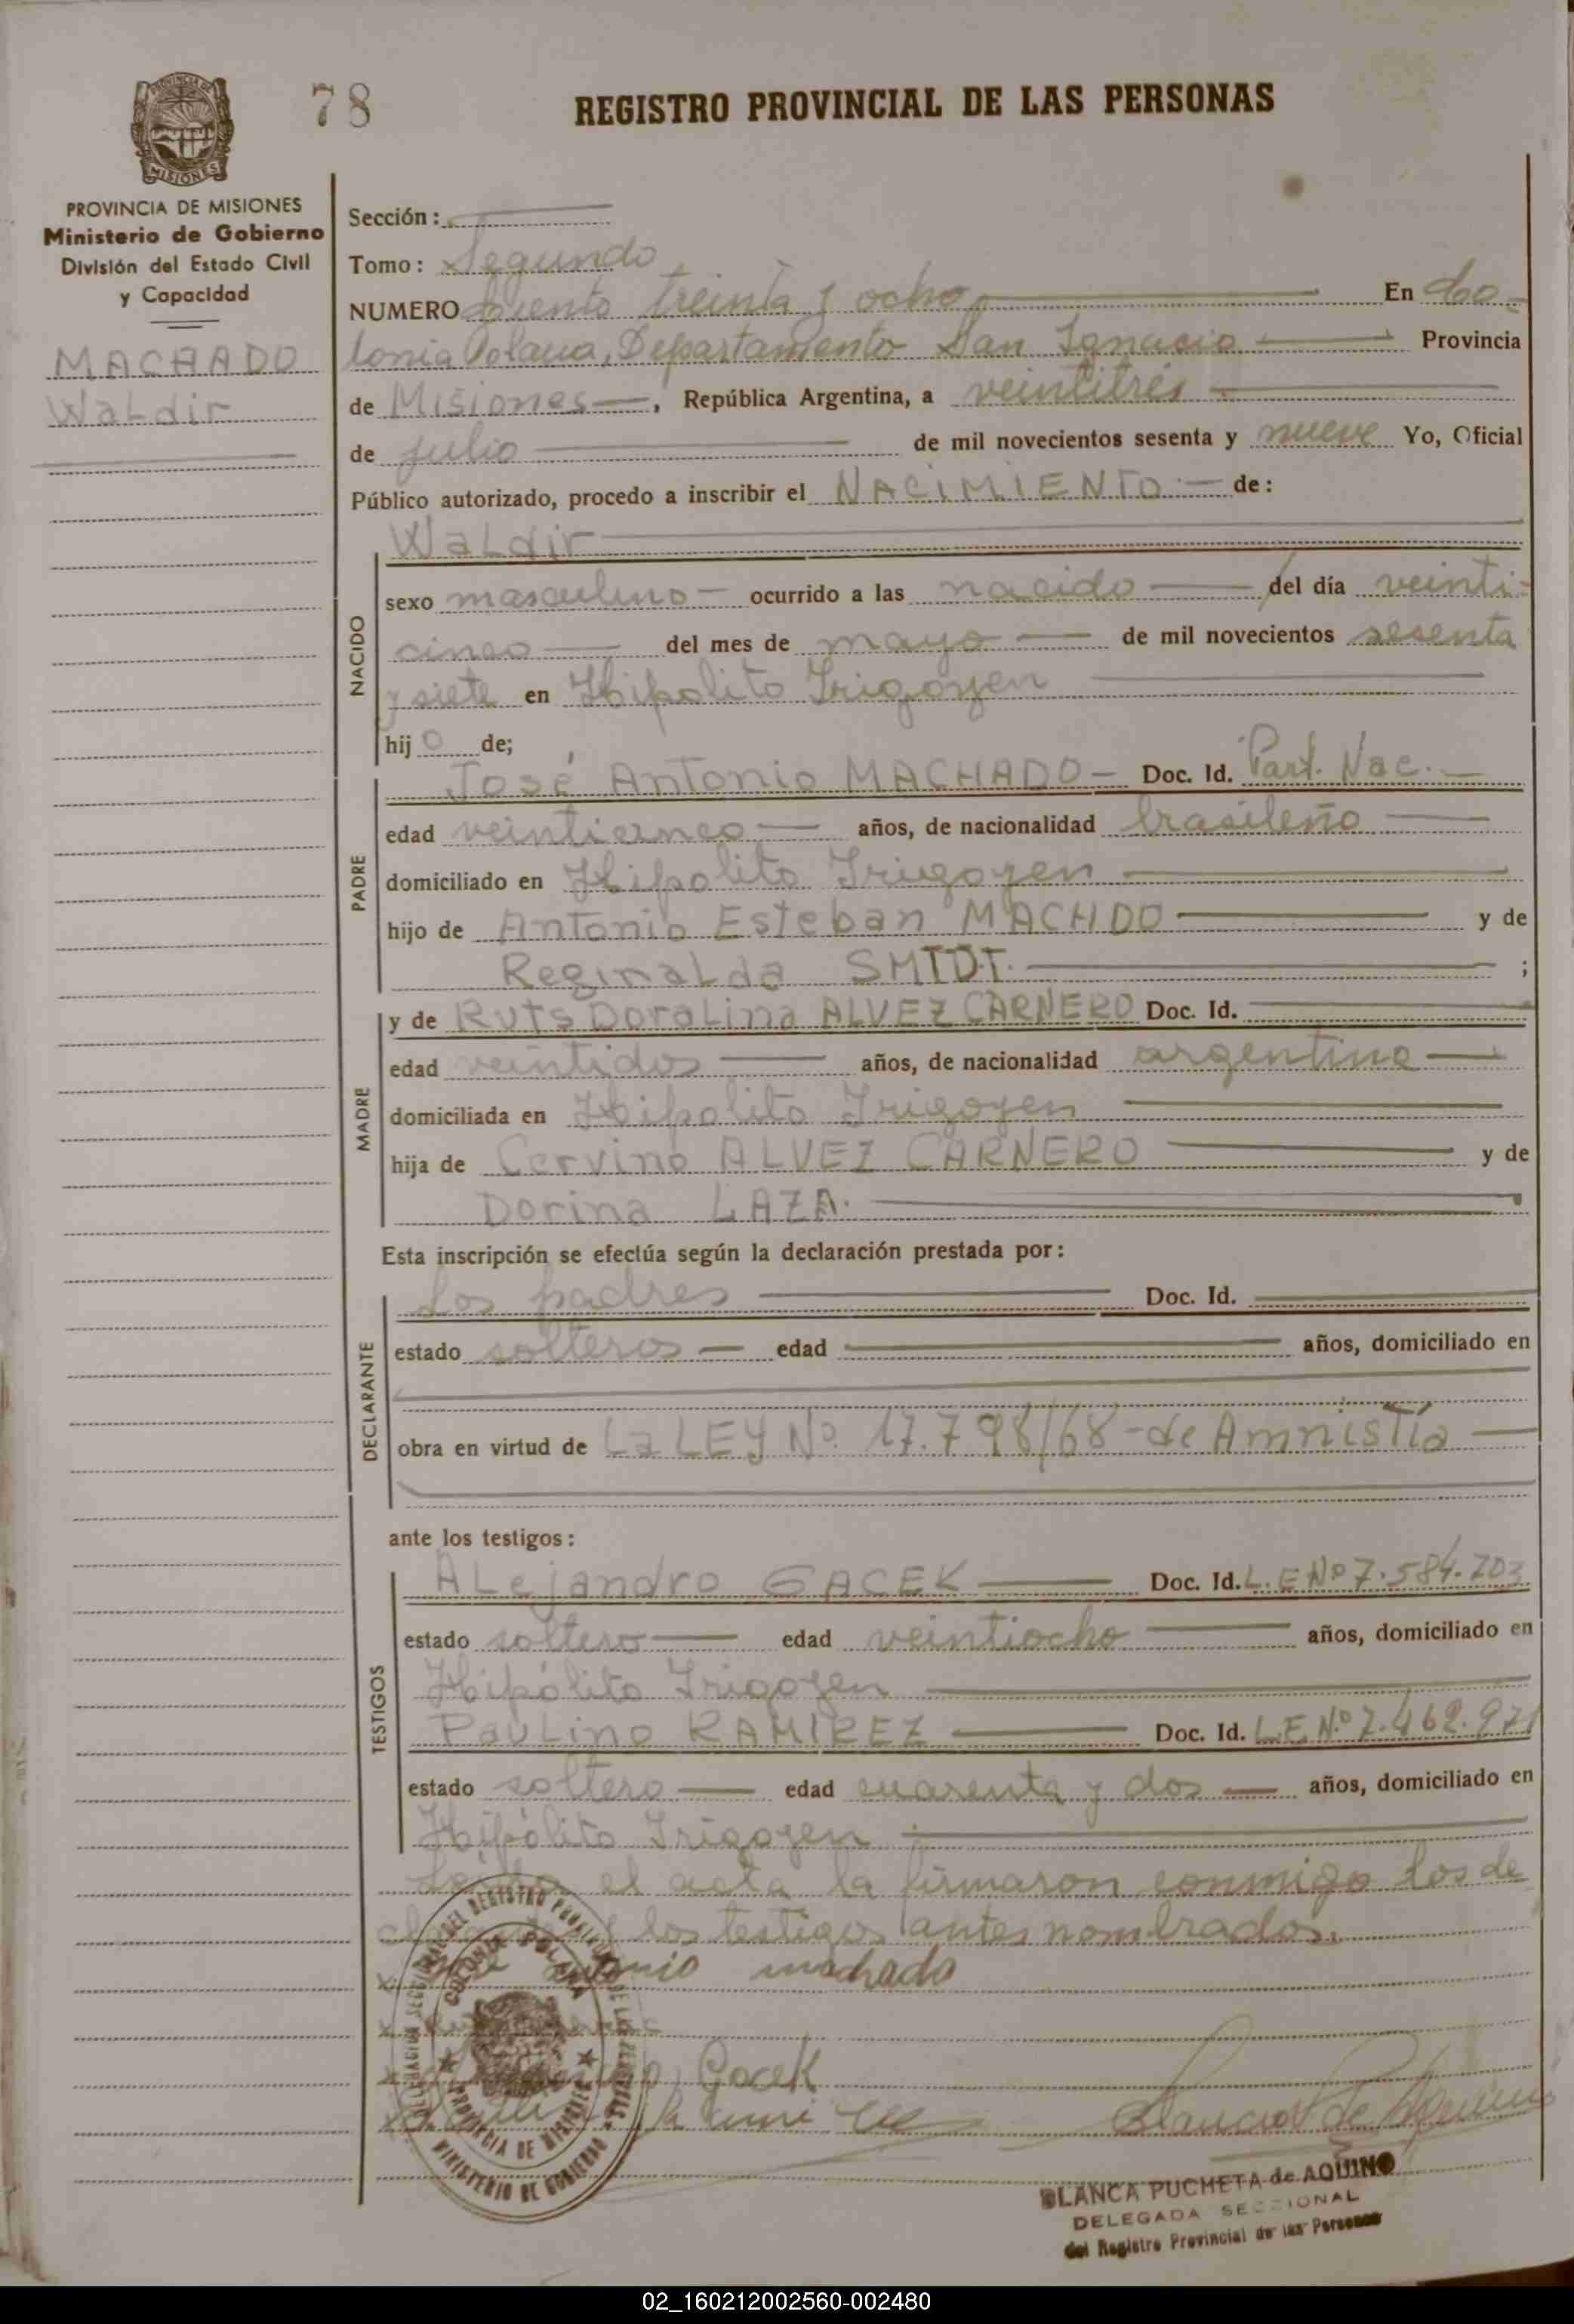 78
REGISTRO PROVINCIAL DE LAS PERSONAS
PROVINCIA DE MISIONES
Ministerio de Gobierno
División del Estado Civil
y Capacidad
MACHADO
Waldir
Sección:
Tomo: Segundo
NUMERO Ciento treinta y ocho En Co-
lonia Polana, Departamento San Ignacio Provincia
de Misiones, República Argentina, a veintitrés
de julio de mil novecientos sesenta y nueve Yo, Oficial
Público autorizado, procedo a inscribir el NACIMIENTO de:
Waldir
NACIDO
sexo masculino ocurrido a las nacido del día veinti-
cinco del mes de mayo de mil novecientos sesenta
y siete en Hipolito Irigoyen
hijo de;
PADRE
José Antonio MACHADO Doc. Id. Part. Nac.
edad años, de nacionalidad brasileño
domiciliado en Hipolito Irigoyen
hijo de Antonio Esteban MACHDO y de
Reginalda SMIDT. ;
MADRE
y de Ruts Doralina ALVEZ CARNERO Doc. Id.
edad veintidos años, de nacionalidad argentina
domiciliada en Hipolito Irigoyen
hija de Cervino ALVEZ CARNERO y de
Dorina LAZA.
Esta inscripción se efectúa según la declaración prestada por:
DECLARANTE
Los padres Doc. Id.
estado solteros edad años, domiciliado en
obra en virtud de La LEY Nº 17.798/68 - de Amnistía
ante los testigos:
TESTIGOS
Alejandro GACEK Doc. Id. L.E Nº 7.584.703
estado soltero edad veintiocho años, domiciliado en
Hipólito Irigoyen
Paulino RAMIREZ Doc. Id. L.E. Nº 7.462.971
estado soltero edad cuarenta y dos años, domiciliado en
Hipólito Irigoyen
el acta la firmaron conmigo los de
los testigos antes nombrados.
antonio machado
Gacek
BLANCA PUCHETA de AQUINO
DELEGADA SECCIONAL
del Registro Provincial de las Personas
COLONIA POLANA
PROVINCIA DE MISIONES
MINISTERIO DE GOBIERNO
02_160212002560-002480